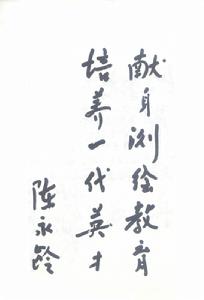 献身测绘教育
培养一代英才
陈永龄